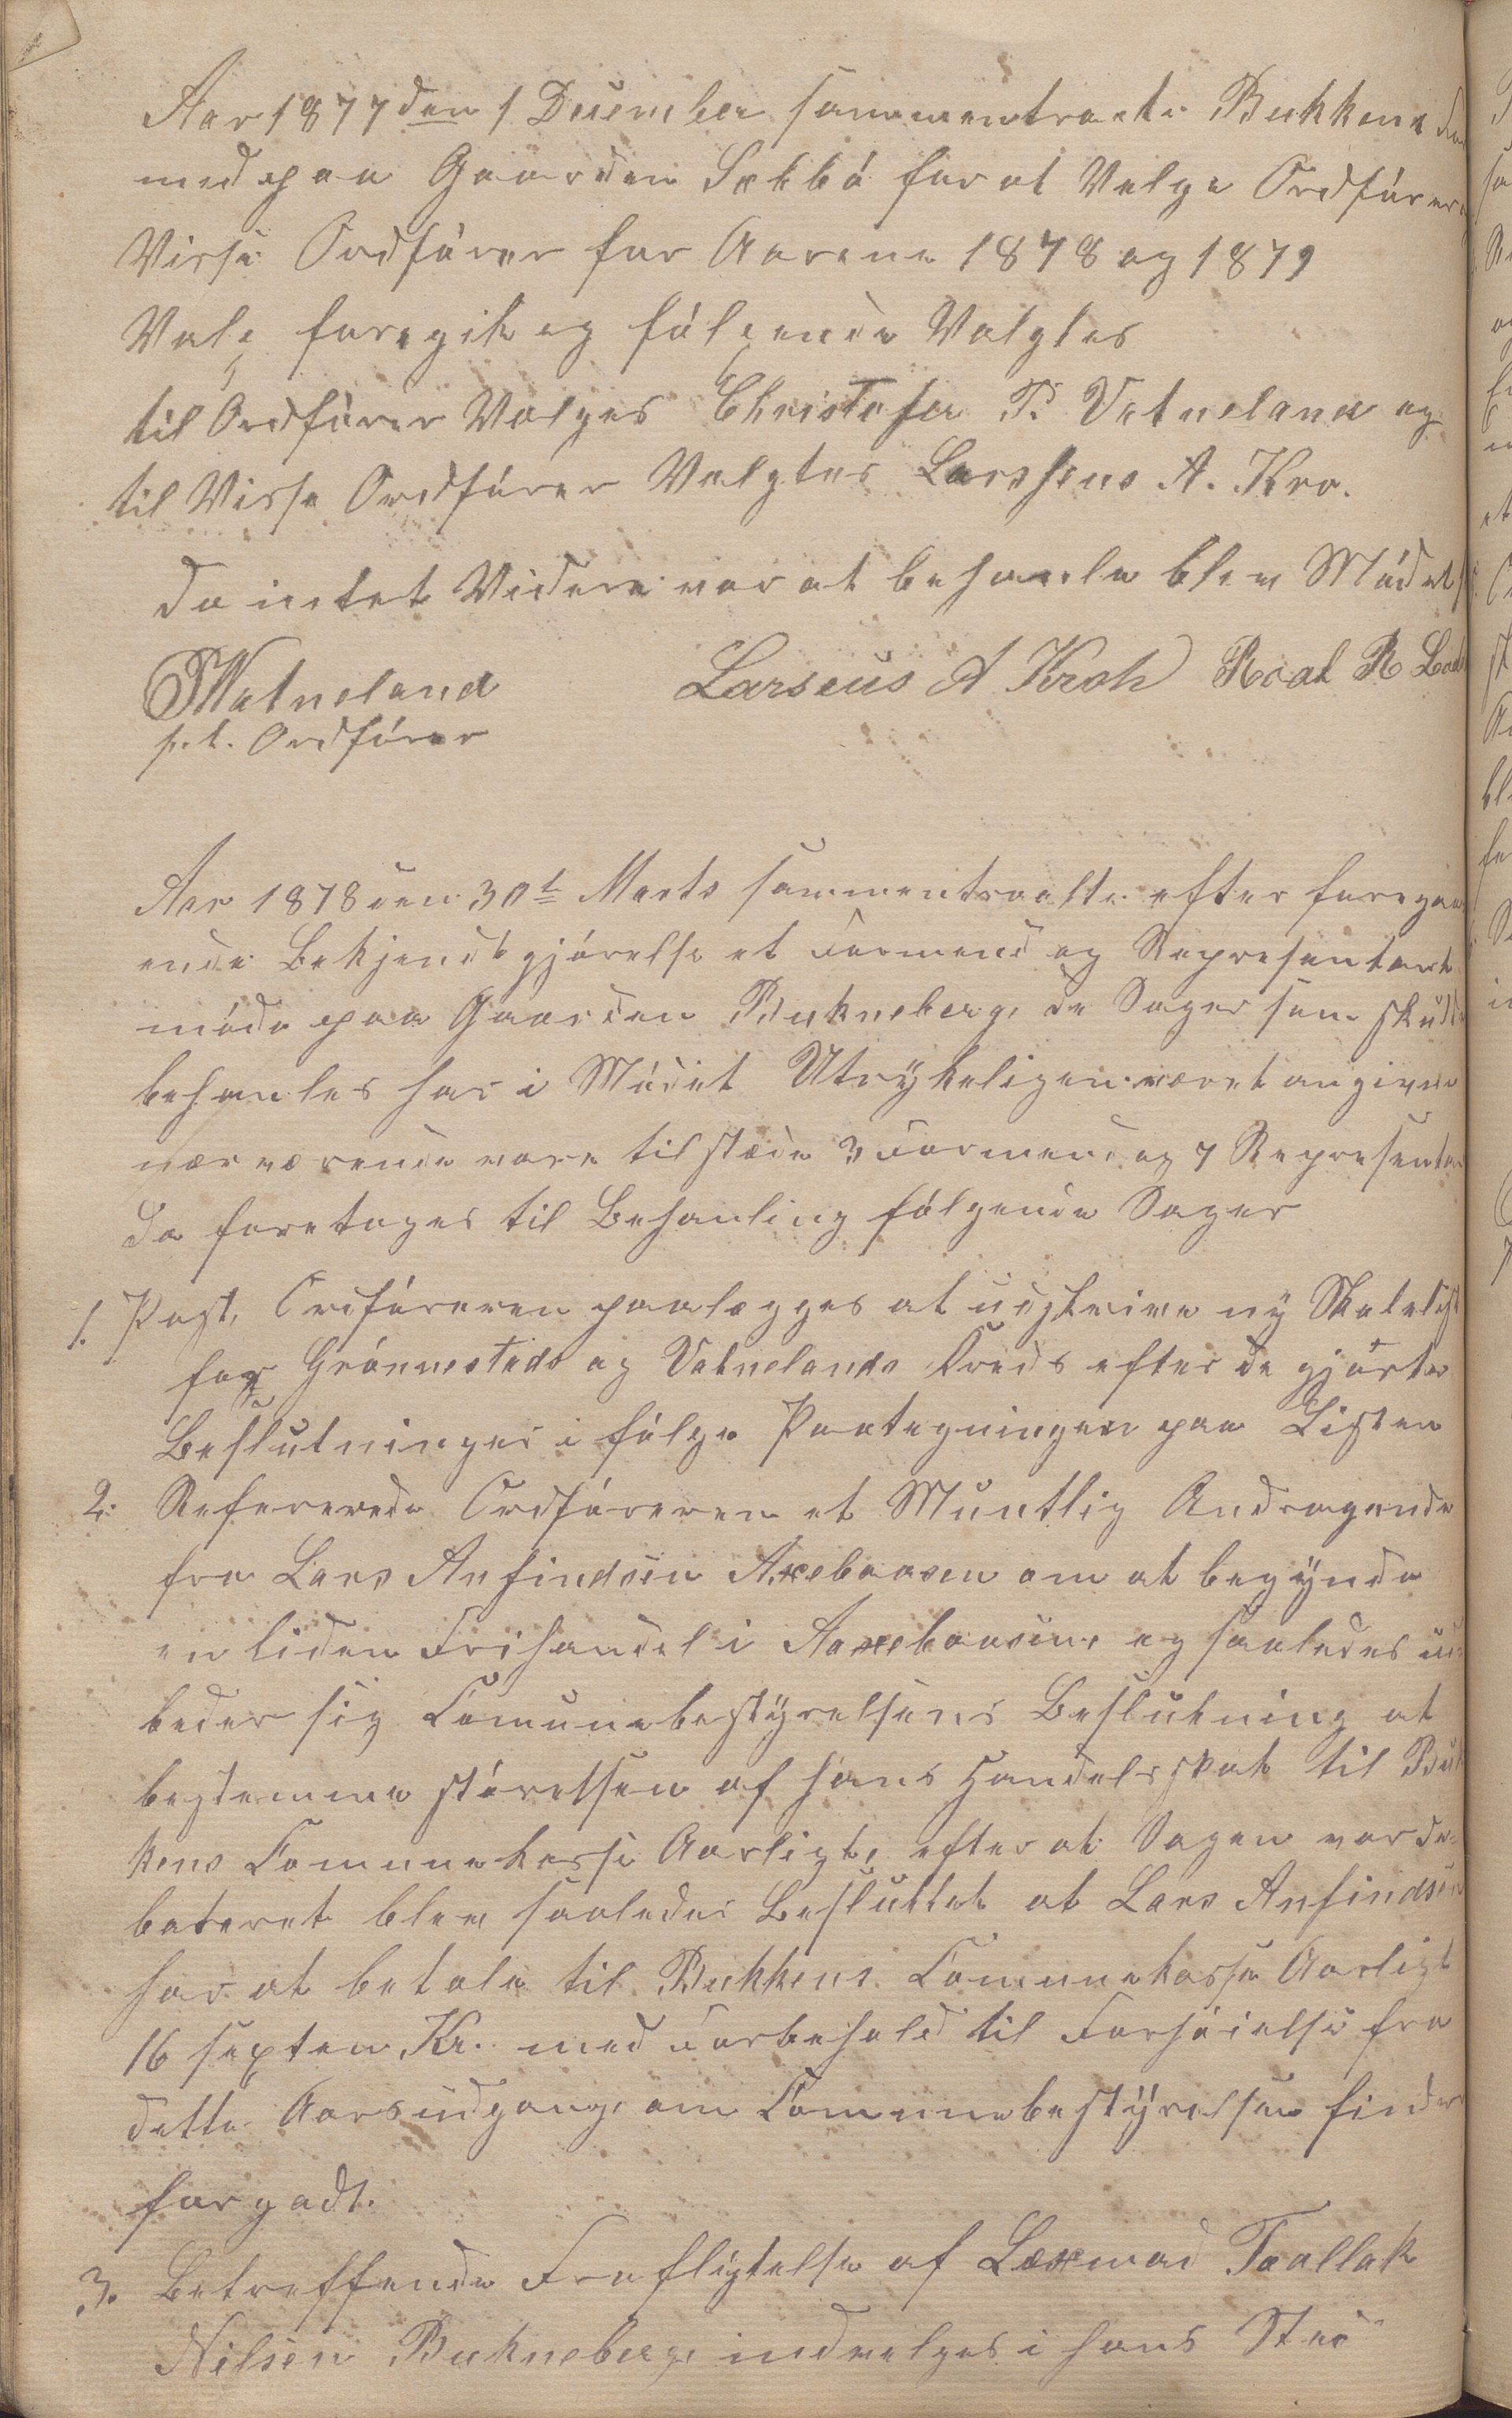 Aar 1877 den 1 December sammentraate Bukkens
med paa Gaarden Sæbbö for at Velge Ordförer
Visse Ordförer for Aarene 1878 og 1879
Valg foregik og fölgende Valgtes
til Ordförer Valges Christofer T. Vatneland og
til Visse Ordförer Valgtes Larsseus A. Kro.
da intet Videre var at behanle blev Mödet
Vatneland Larseus A Kroh Roal R
p.t. Ordförer
Aar 1878 den 30t Marts sammentraatte efter foregaa
ende Bekjendtgjörelse et Formend og Representant
möde paa Gaarden Bukneberg, de Sager som skulde
behanles har i Mödet Utrykeligen været angivne
nærværende vare tilstæde 3 Formend og 7 Represent
da foretoges til Behanling fölgende Sager
1. Post, Ordföreren paalægges at udskrive ny Skatelist
for Grönnestads og Vatnelands Kreds efter de gjorte
Beslutninger i fölge Paategningen paa Listen
2. Refererede Ordföreren et Muntlig Andragende
fra Lars Anfindsen Axebaasen om at begynde
en liden Frihandel i Aaxebaasen, og saaledes ud
beder sig Comunebestyrelsens Beslutning at
bestemme störelsen af hans Handelsskat til Buk
kens Communekasse Aarligt, efter at Sagen var de-
bateret blev saaledes Besluttet at Lars Anfindsen
har at betale til Bukkens Comunekasse Aarligt
16 sexten Kr. med Forbehold til Forhöielse fra
dette Aars udgang, om Comunebestyrelsen finder
for godt.
3. Betreffende Frafligtelse af Laxmad Taallak
Nilsen Bukneberg, indvelges i hans Sted